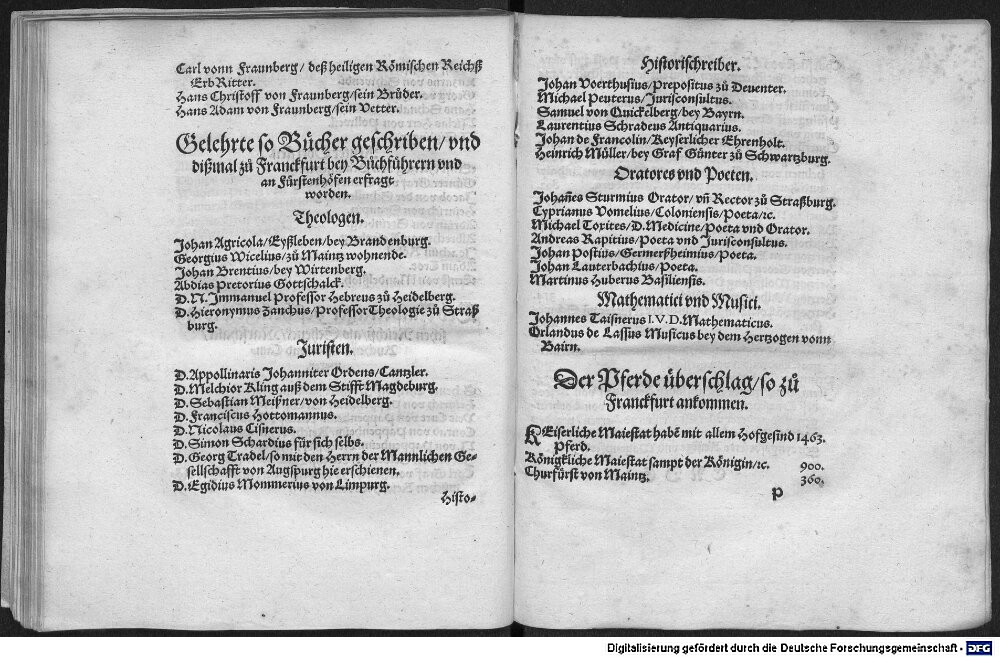 Carl vonn Fraunberg/ deß heiligen Römischen Reichß
Erb Ritter.
Hans Christoff von Fraunberg/sein Brůder.
Hans Adam von Fraunberg/sein Vetter.
Gelehrte so Bücher geschriben/vnd
dißmal zů Franckfurt bey Bůchführern vnd
an Fürstenhöfen erfragt
worden.
Theologen.
Johan Agricola/Eyßleben/bey Brandenburg.
Georgius Wicelius/zů Maintz wohnende.
Johan Brentius/bey Wirtenberg.
Abdias Pretorius Gottschalck.
D.N. Immanuel Professor Hebreus zů Heidelberg.
D. Hieronymus Zanchus/Professor Theologie zů Straß
burg.
Juristen.
D. Appollinaris Johanniter Ordens/Cantzler.
D. Melchior Kling auß dem Stifft Magdeburg.
D. Sebastian Meißner/von Heidelberg.
D. Franciscus Hottomannus.
D. Nicolaus Cisnerus.
D. Simon Schardius für sich selbs.
D. Georg Tradel/so mit den Herrn der Mannlichen Ge-
sellschafft von Augspurg hie erschienen.
D. Egidius Mommerius von Limpurg.
Histo-
Historischreiber.
Johan Voerthusius/Prepositus zů Deuenter.
Michael Peuterus/Jurisconsultus.
Samuel von Quickelberg/bey Bayrn.
Laurentius Schradeus Antiquarius.
Johan de Francolin/Keyserlicher Ehrenholt.
Heinrich Müller/bey Graf Günter zů Schwartzburg.
Oratores vnd Poeten.
Johañes Sturmius Orator/vñ Rector zů Straßburg.
Cyprianus Vomelius/Coloniensis/Poeta/ꝛc.
Michael Toxites/D. Medicine/Poeta vnd Orator.
Andreas Rapitius/Poeta vnd Jurisconsultus.
Johan Postius/Germerßheimius/Poeta.
Johan Lauterbachius/Poeta.
Martinus Huberus Basiliensis.
Mathematici vnd Musici.
Johannes Taisnerus I.V.D. Mathematicus.
Orlandus de Lassus Musicus bey dem Hertzogen vonn
Bairn.
Der Pferde überschlag/so zů
Franckfurt ankommen.
KEiserliche Maiestat habẽ mit allem Hofgesind 1463.
Pferd.
Königkliche Maiestat sampt der Königin/ꝛc. 900.
Churfürst von Maintz. 360.
P
Digitalisierung gefördert durch die Deutsche Forschungsgemeinschaft - DFG